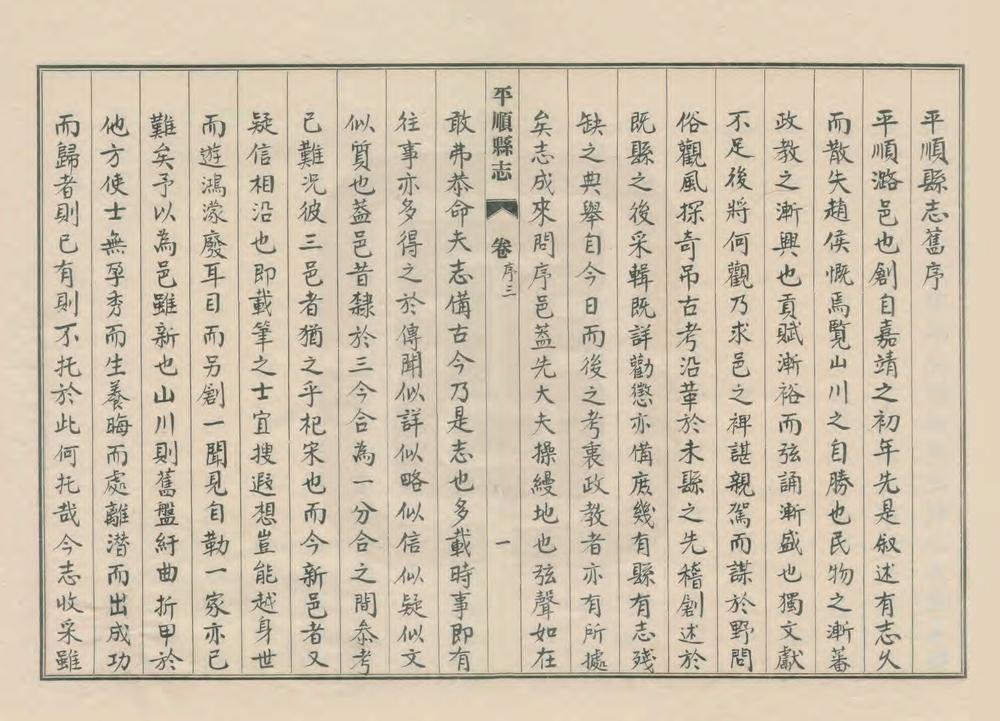 平順縣志舊序
平順潞邑也創自嘉靖之初年先是叙述有志久
而散失趙侯慨焉覽山川之自勝也民物之漸蕃
政教之漸興也貢賦漸裕而弦誦漸盛也獨文獻
不足後將何觀乃求邑之裨諶親駕而謀於野問
俗觀風探奇吊古考沿革於未縣之先稽創述於
既縣之後采輯既詳勸懲亦俻庶幾有縣有志殘
缺之典舉自今日而後之考裏政教者亦有所據
矣志成來問序邑葢先大夫操縵地也弦聲如在
平順縣志 卷 序三 一
敢弗恭命夫志俻古今乃是志也多載時事即有
往事亦多得之於傳聞似詳似略似信似疑似文
似質也葢邑昔隸於三今合為一分合之間叅考
已難况彼三邑者猶之乎杞宋也而今新邑者又
疑信相沿也即載筆之士宜搜遐想豈能越身世
而遊鴻濛廢耳目而另創一聞見自勒一家亦已
難矣予以為邑雖新也山川則舊盤紆曲折甲於
他方使士無孕秀而生養晦而處離潜而出成功
而歸者則已有則不托於此何托哉今志收采雖